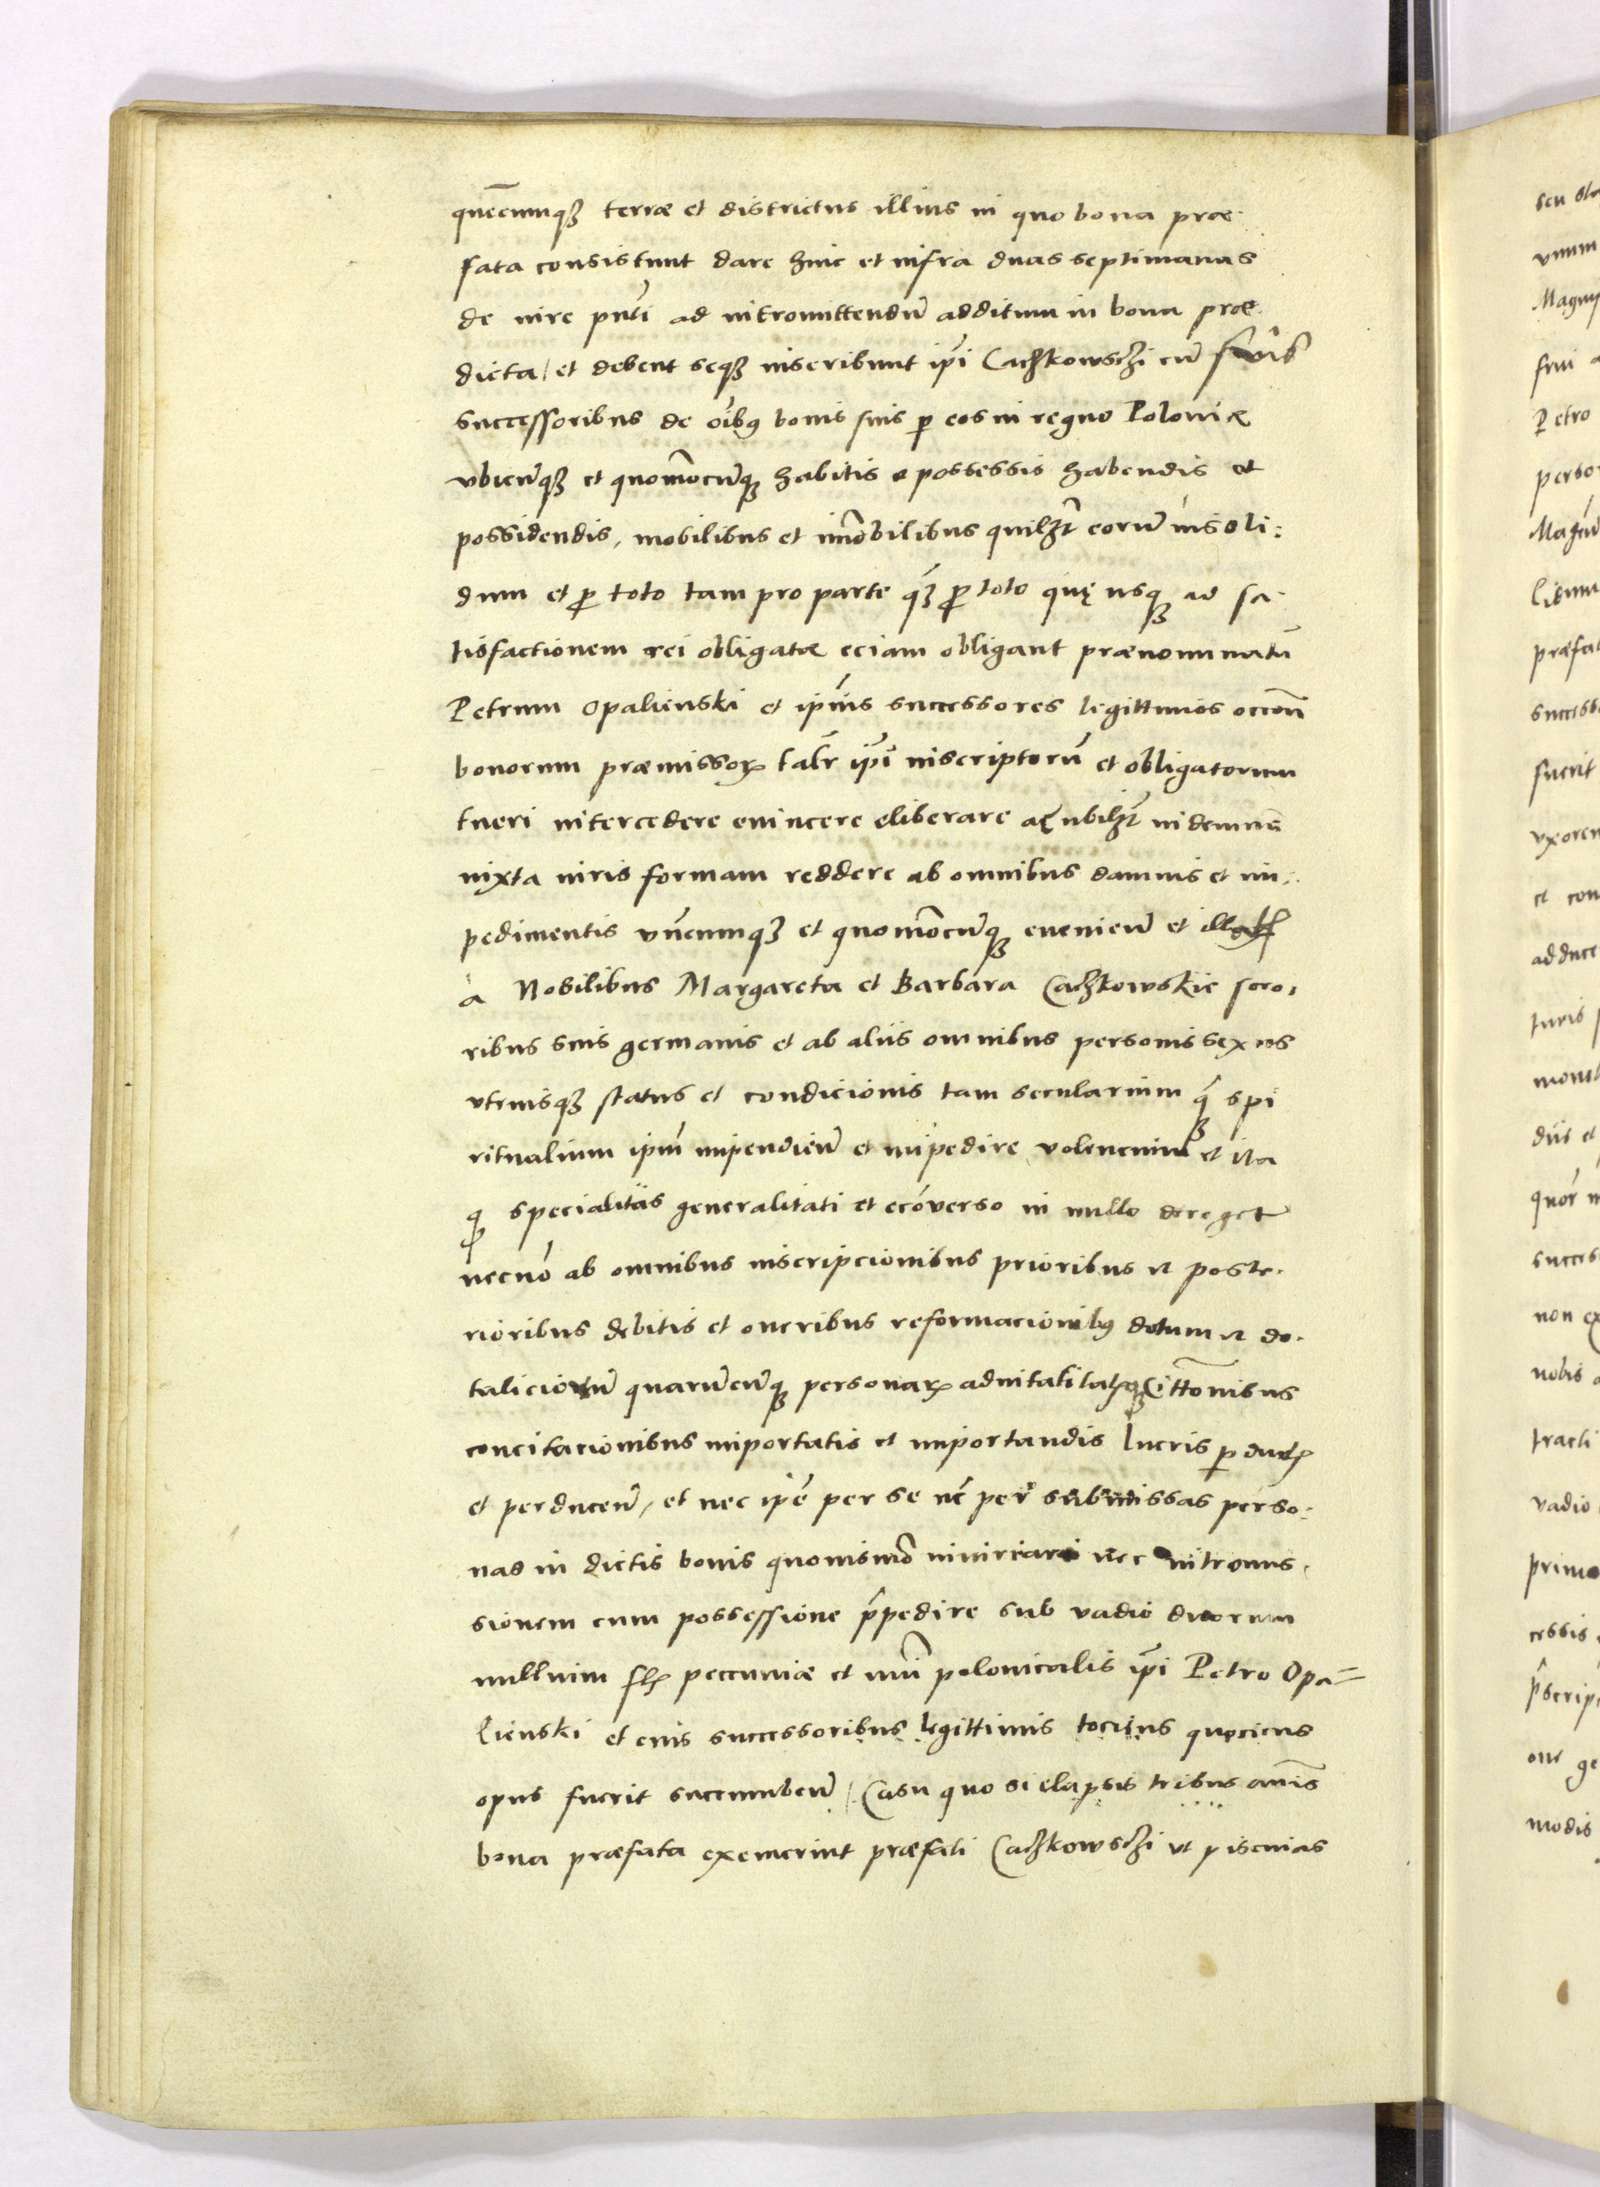 quēcumqȝ terræ et districtus illius in quo bona præ-
fata consistunt dare hinc et infra duas septimanas
de iure pn̄ti ad intromittendū additum in bona præ-
dicta / et debent seqȝ inscribunt ip̄i Caczkowschi cū suis
successoribus de oībꝫ bonis suis p eos in regno Poloniæ
vbicūqȝ et quomōcūqȝ habitis e possessis habendis et
possidendis, mobilibus et im̄obilibus quilꝫt eorū insoli-
dum et ꝓ toto tam pro parte qȝ̄ ꝓ toto quę usqȝ ad sa-
tisfactionem rei obligatæ eciam obligant prænominatū
Petrum Opalienski et ip̄ius successores legittimos occōn̄
bonorum præmissoꝝ talr̄ ip̄i inscriptorū et obligatorum
tueri intercedere euincere eliberare aꝗ ubilꝫt indemnē
iuxta iuris formam reddere ab omnibus damnis et im-
pedimentis vn̄cumqȝ et quomōcūqȝ eueniēn̄ et illatꝭ
a Nobilibus Margareta et Barbara Caczkowskie soro-
ribus suis germanis et ab aliis omnibus personis sexus
vtriusqȝ status et condicionis tam secularium qȝ̄ spi
ritualium ip̄m impendieñ et impedire volencium et ita
ꝙ specialitas generalitati et ecōverso in nullo deroget
necnō ab omnibus inscripcionibus prioribus et poste-
rioribus debitis et oneribus reformacionibꝫ dotum et do-
taliciorum quarūcūqȝ personaꝝ aduitalitatꝭ Cittōnibus
concitacionibus importatis et importandis lucris p ductꝭ
et perduceñ, et nec ip̄e per se nc̄ per submissas perso-
nas in dictis bonis quouismō iniuriari nec intromis-
sionem cum possessione p̄pedire sub vadio ducorum
millium flꝭ peccuniæ et nu̅i polonicalis ip̄i Petro Opa=
lienski et eius successoribus legittimis tociens quociens
opus fuerit succumbeñ / Casu quo si elapsis tribus annis
bona præfata exemerint præfati Caczkowschi vt piscinas